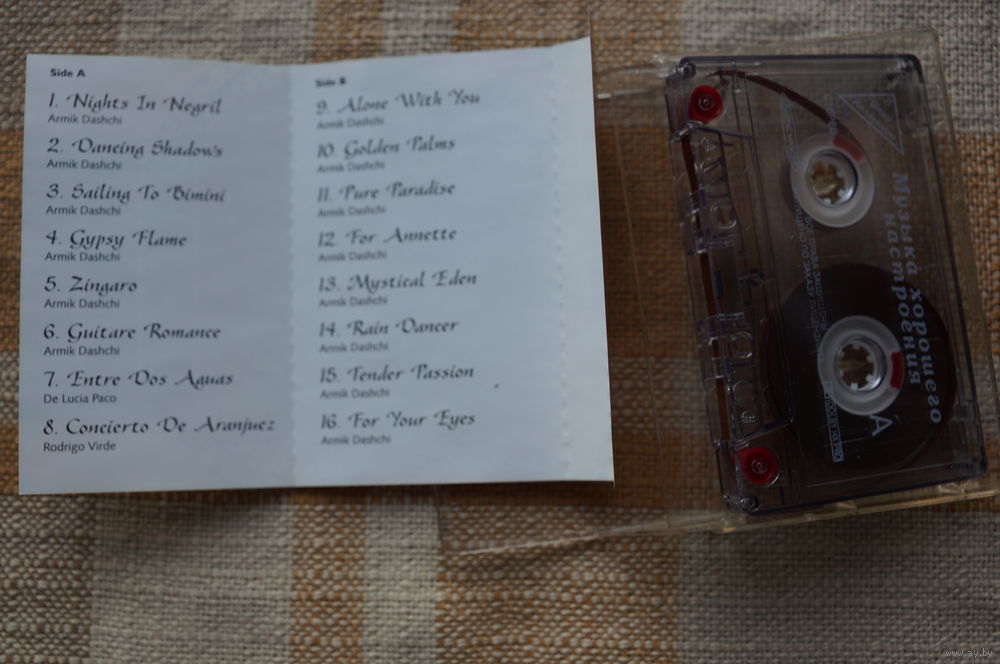 Side A
1. Nights In Negril
Armik Dashchi
2. Dancing Shadows
Armik Dashchi
3. Sailing To Bimini
Armik Dashchi
4. Gypsy Flame
Armik Dashchi
5. Zingaro
Armik Dashchi
6. Guitare Romance
Armik Dashchi
7. Entre Dos Aguas
De Lucia Paco
8. Concierto De Aranjuez
Rodrigo Virde
Side B
9. Alone With You
Armik Dashchi
10. Golden Palms
Armik Dashchi
11. Pure Paradise
Armik Dashchi
12. For Annette
Armik Dashchi
13. Mystical Eden
Armik Dashchi
14. Rain Dancer
Armik Dashchi
15. Tender Passion
Armik Dashchi
16. For Your Eyes
Armik Dashchi
Музыка хорошего
настроения
A
www.ay.by